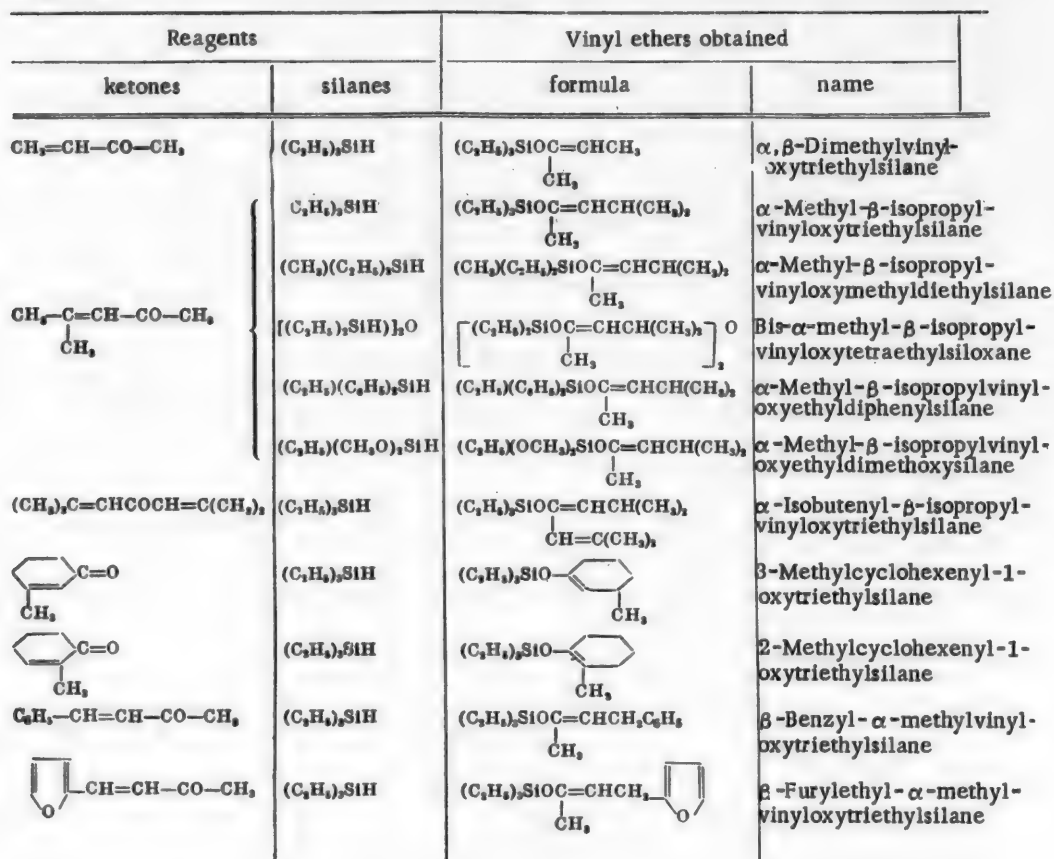 Reagents Vinyl ethers obtained
ketones silanes formula name
CH₂=CH—CO—CH₃ (C₂H₅)₃SiH (C₂H₅)₃SiOC=CHCH₃ α,β-Dimethylvinyl-
CH₃ oxytriethylsilane
C₂H₅)₃SiH (C₂H₅)₃SiOC=CHCH(CH₃)₂ α-Methyl-β-isopropyl-
CH₃ vinyloxytriethylsilane
(CH₃)(C₂H₅)₂SiH (CH₃)(C₂H₅)₂SiOC=CHCH(CH₃)₂ α-Methyl-β-isopropyl-
CH₃ vinyloxymethyldiethylsilane
CH₃—C=CH—CO—CH₃ [(C₂H₅)₂SiH)]₂O [(C₂H₅)₂SiOC=CHCH(CH₃)₂]₂ O Bis-α-methyl-β-isopropyl-
CH₃ CH₃ vinyloxytetraethylsiloxane
(C₂H₅)(C₆H₅)₂SiH (C₂H₅)(C₆H₅)₂SiOC=CHCH(CH₃)₂ α-Methyl-β-isopropylvinyl-
CH₃ oxyethyldiphenylsilane
(C₂H₅)(CH₃O)₂SiH (C₂H₅)(OCH₃)₂SiOC=CHCH(CH₃)₂ α-Methyl-β-isopropylvinyl-
CH₃ oxyethyldimethoxysilane
(CH₃)₂C=CHCOCH=C(CH₃)₂ (C₂H₅)₃SiH (C₂H₅)₃SiOC=CHCH(CH₃)₂ α-Isobutenyl-β-isopropyl-
CH=C(CH₃)₂ vinyloxytriethylsilane
C=O (C₂H₅)₃SiH (C₂H₅)₃SiO— 3-Methylcyclohexenyl-1-
CH₃ CH₃ oxytriethylsilane
C=O (C₂H₅)₃SiH (C₂H₅)₃SiO— 2-Methylcyclohexenyl-1-
CH₃ CH₃ oxytriethylsilane
C₆H₅—CH=CH—CO—CH₃ (C₂H₅)₃SiH (C₂H₅)₃SiOC=CHCH₂C₆H₅ β-Benzyl-α-methylvinyl-
CH₃ oxytriethylsilane
O —CH=CH—CO—CH₃ (C₂H₅)₃SiH (C₂H₅)₃SiOC=CHCH₂— O β-Furylethyl-α-methyl-
CH₃ vinyloxytriethylsilane